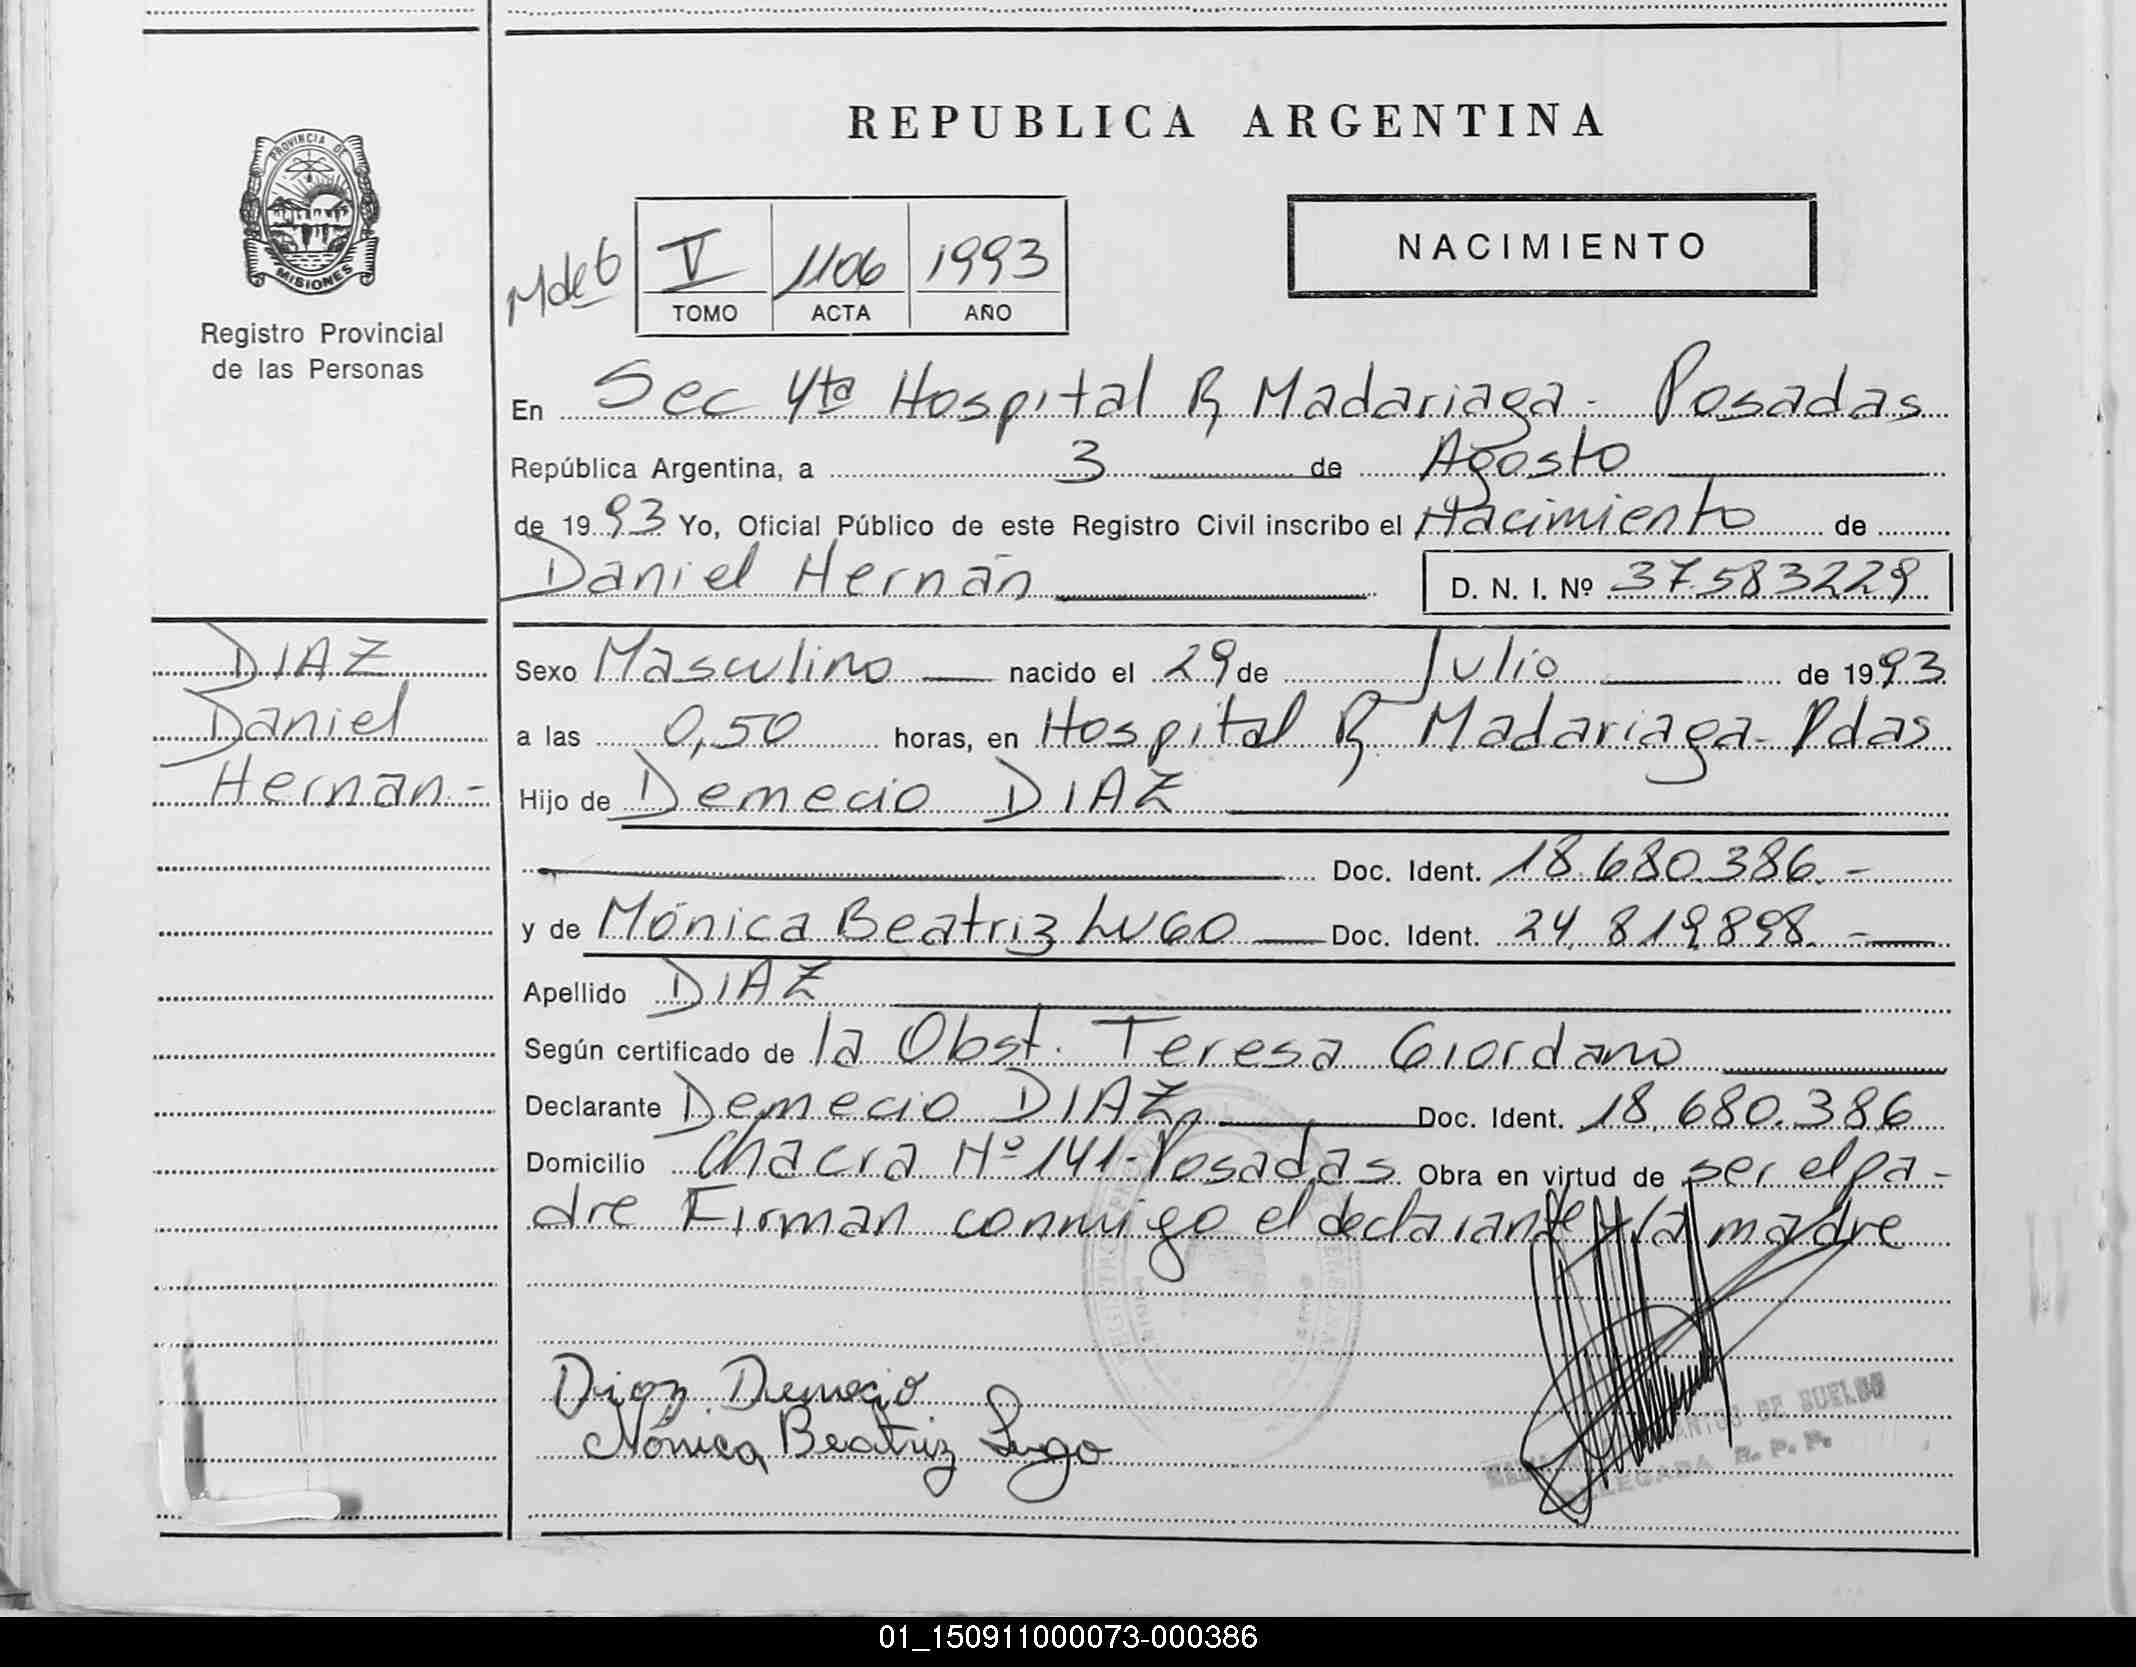 REPUBLICA ARGENTINA
PROVINCIA DE
MISIONES
Registro Provincial
de las Personas
NACIMIENTO
V 1106 1993
TOMO ACTA AÑO
En Sec 4ta Hospital R Madariaga - Posadas
República Argentina, a 3 de Agosto
de 1993 Yo, Oficial Público de este Registro Civil inscribo el Nacimiento de
Daniel Hernán D. N. I. Nº 37.583229
DIAZ
Daniel
Hernan -
Sexo Masculino nacido el 29 de Julio de 1993
a las 0,50 horas, en Hospital R Madariaga - Pdas
Hijo de Demecio DIAZ
Doc. Ident. 18.680.386.-
y de Mónica Beatriz LUGO Doc. Ident. 24.819.898.-
Apellido DIAZ
Según certificado de la Obst. Teresa Giordano
Declarante Demecio DIAZ Doc. Ident. 18.680.386
Domicilio Chacra Nº 141-Posadas Obra en virtud de ser el pa-
dre Firman conmigo el declarante y la madre
Diaz Demecio
Mónica Beatriz Lugo
DE SUELDO
DELEGADA R. P. P.
01_150911000073-000386